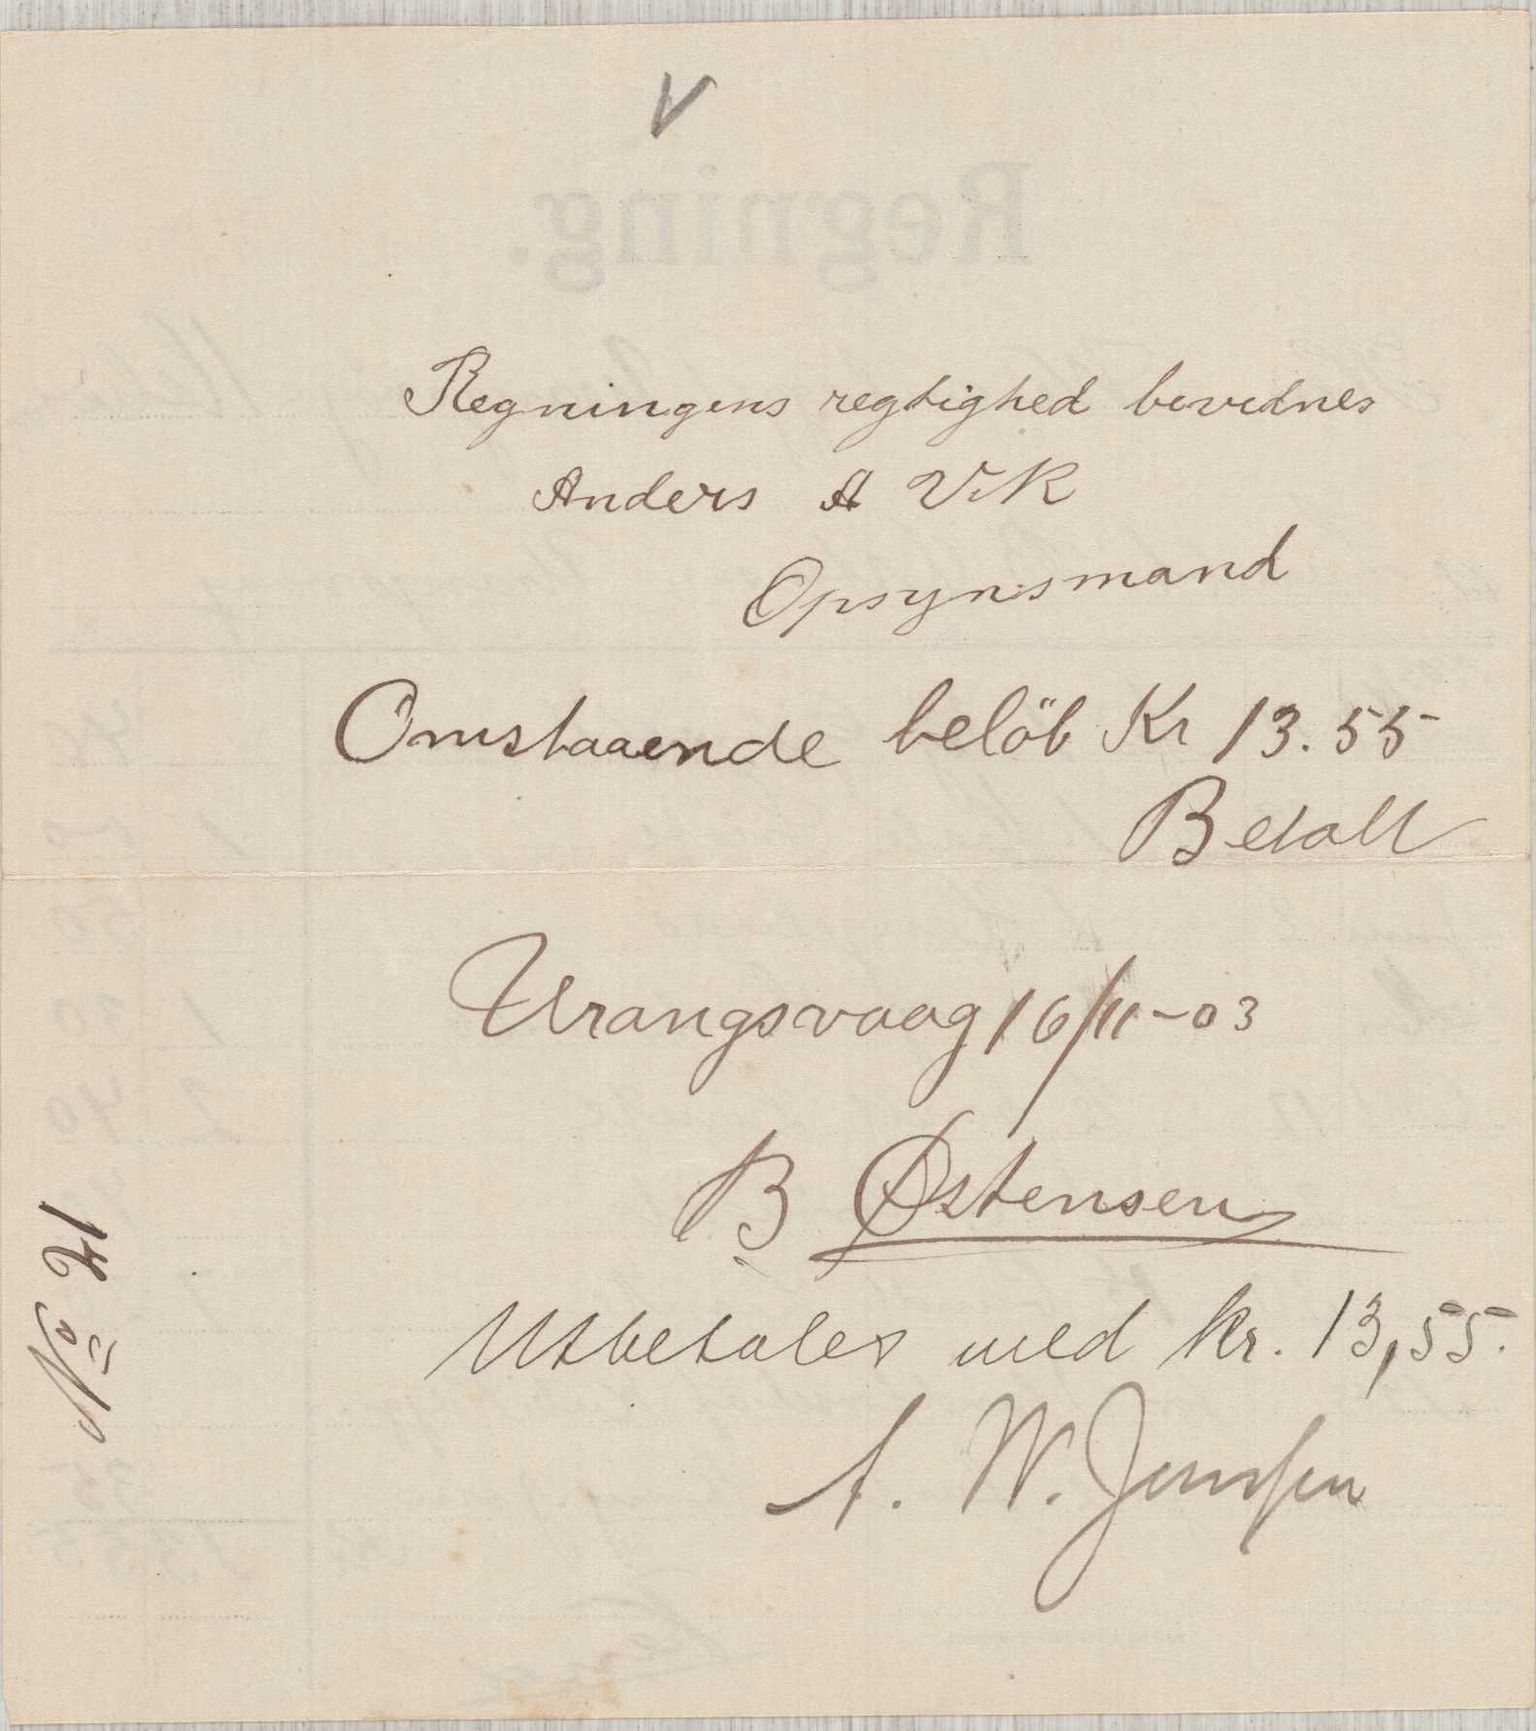 V
Regning.
Regningens regtighed bevidnes
Anders A Vik
Opsynsmand
Omstaaende belöb Kr 13.55
Betalt
Urangsvaag 16/11-03
B Østensen
Utbetales med kr. 13,55.
A. W. Jenssen
No 21